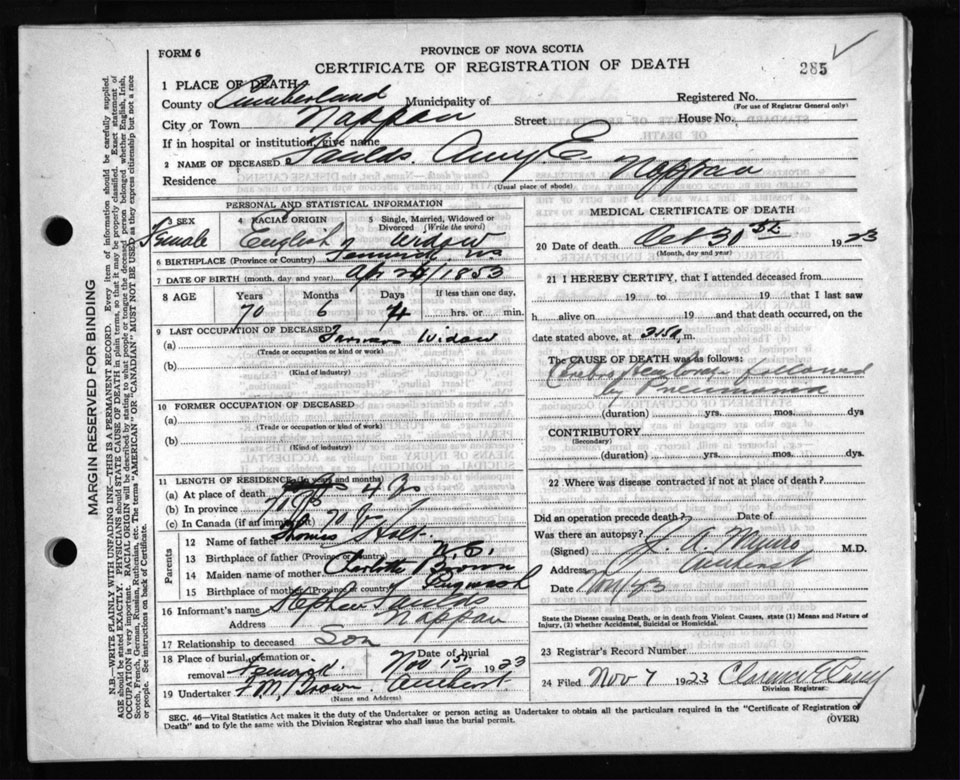 FORM 6
PROVINCE OF NOVA SCOTIA
CERTIFICATE OF REGISTRATION OF DEATH
285
1 PLACE OF DEATH
County of Cumberland Municipality of Registered No.
(For use of Registrar General only)
City or Town Nappan Street House No.
If in hospital or institution, give name
2 NAME OF DECEASED Faulds. Amy. E
Residence Nappan
(Usual place of abode)
PERSONAL AND STATISTICAL INFORMATION
3 SEX 4 RACIAL ORIGIN 5 Single, Married, Widowed or Divorced (Write the word)
Female English Widow
6 BIRTHPLACE (Province or Country) Fenwick. NS
7 DATE OF BIRTH (month, day and year) Apr 24/1853
8 AGE Years Months Days If less than one day,
70 6 hrs. or min.
9 LAST OCCUPATION OF DECEASED
(a) Farmers Widow
(Trade or occupation or kind or work)
(b)
(Kind of industry)
10 FORMER OCCUPATION OF DECEASED
(a)
(Trade or occupation or kind or work)
(b)
(Kind of industry)
11 LENGTH OF RESIDENCE (In years and months)
(a) At place of death
(b) In province
(c) In Canada (if an immigrant) 70
Parents
12 Name of father Thomas
13 Birthplace of father (Province or Country)
14 Maiden name of mother Charlotte Brown
15 Birthplace of mother (Province or Country) Pugwash
16 Informant's name Stephen Faulds
Address Nappan
17 Relationship to deceased Son
18 Place of burial, cremation or removal Fenwick. Date of burial Nov 1st 1923
19 Undertaker F M Brown. Amherst.
(Name and Address)
MEDICAL CERTIFICATE OF DEATH
20 Date of death Oct 30 1923
(Month, day and year)
21 I HEREBY CERTIFY, that I attended deceased from
19 to 19 that I last saw
h alive on 19 and that death occurred, on the
date stated above, at m.
The CAUSE OF DEATH was as follows:
followed
by Pneumonia
(duration) yrs. mos. dys
CONTRIBUTORY
(Secondary)
(duration) yrs. mos. dys.
22 Where was disease contracted if not at place of death?
Did an operation precede death? Date of
Was there an autopsy?
(Signed) J. A. Munro M.D.
Address Amherst
Date
State the Disease causing Death, or in death from Violent Causes, state (1) Means and Nature of Injury, (2) whether Accidental, Suicidal or Homicidal.
23 Registrar's Record Number
24 Filed Nov 7 1923 Clarence
Division Registrar.
SEC. 46—Vital Statistics Act makes it the duty of the Undertaker or person acting as Undertaker to obtain all the particulars required in the "Certificate of Registration of
Death" and to fyle the same with the Division Registrar who shall issue the burial permit. (OVER)
MARGIN RESERVED FOR BINDING
N.B.—WRITE PLAINLY WITH UNFADING INK—THIS IS A PERMANENT RECORD. Every item of information should be carefully supplied.
AGE should be stated EXACTLY. PHYSICIANS should STATE CAUSE OF DEATH in plain terms, so that it may be properly classified. Exact statement of
OCCUPATION is very important. RACIAL ORIGIN will be described by stating to what people or tongue the deceased person belonged whether English, Irish,
Scotch, French, German, Russian, Ruthenian, etc. The terms "AMERICAN" OR "CANADIAN" MUST NOT BE USED as they express citizenship but not a race
or people. See instructions on back of Certificate.